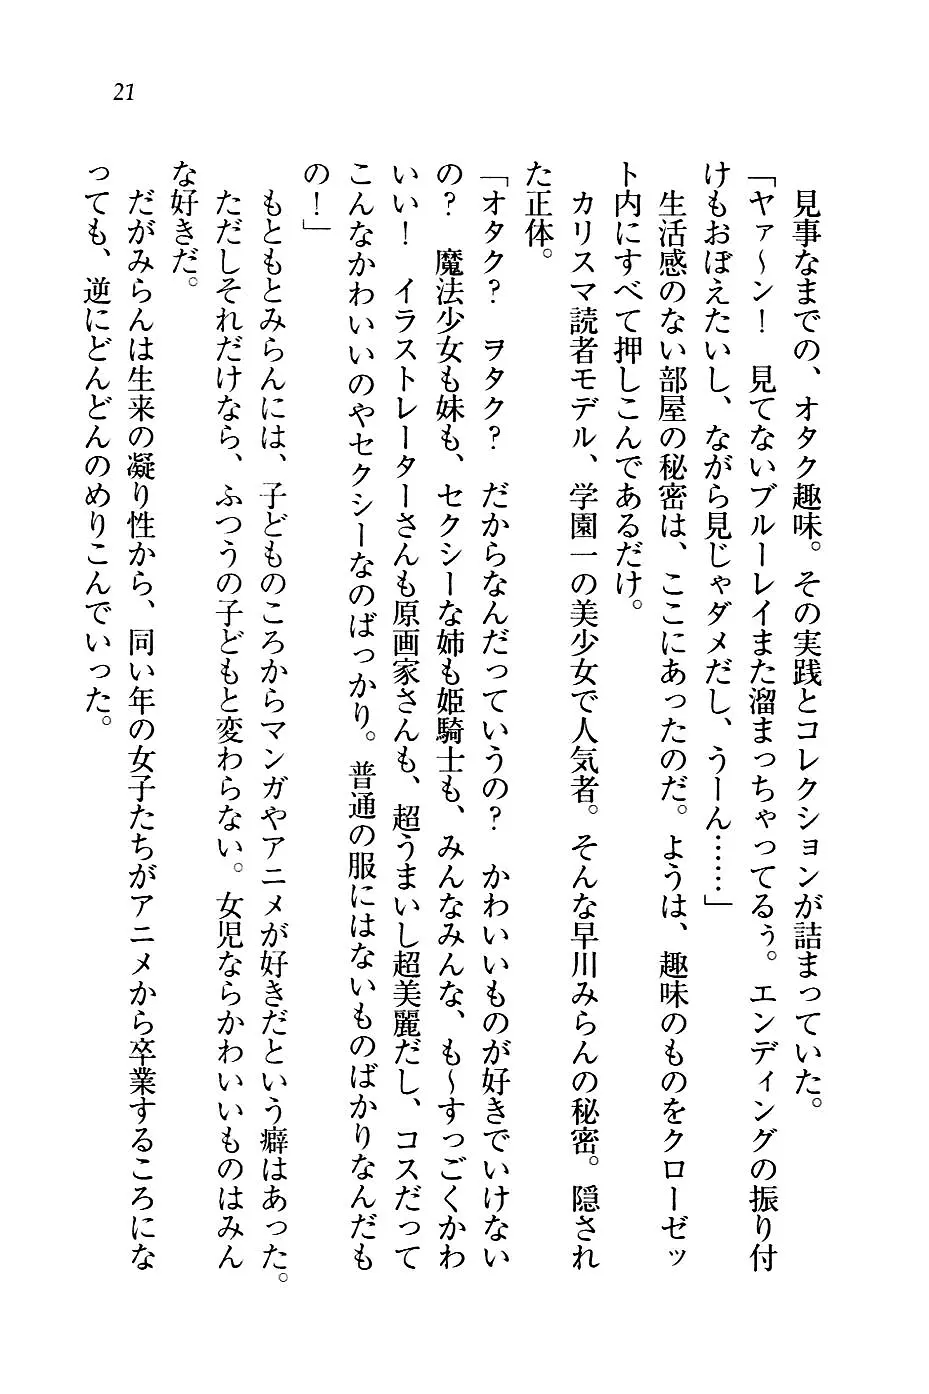 21
見事なまでの、オタク趣味。その実践とコレクションが詰まっていた。
「ヤァ～ン！　見てないブルーレイまた溜まっちゃってるぅ。エンディングの振り付
けもおぼえたいし、ながら見じゃダメだし、うーん……」
生活感のない部屋の秘密は、ここにあったのだ。ようは、趣味のものをクローゼッ
ト内にすべて押しこんであるだけ。
カリスマ読者モデル、学園一の美少女で人気者。そんな早川みらんの秘密。隠され
た正体。
「オタク？　ヲタク？　だからなんだっていうの？　かわいいものが好きでいけない
の？　魔法少女も妹も、セクシーな姉も姫騎士も、みんなみんな、も～すっごくかわ
いい！　イラストレーターさんも原画家さんも、超うまいし超美麗だし、コスだって
こんなかわいいのやセクシーなのばっかり。普通の服にはないものばかりなんだも
の！」
もともとみらんには、子どものころからマンガやアニメが好きだという癖はあった。
ただしそれだけなら、ふつうの子どもと変わらない。女児ならかわいいものはみん
な好きだ。
だがみらんは生来の凝り性から、同い年の女子たちがアニメから卒業するころにな
っても、逆にどんどんのめりこんでいった。